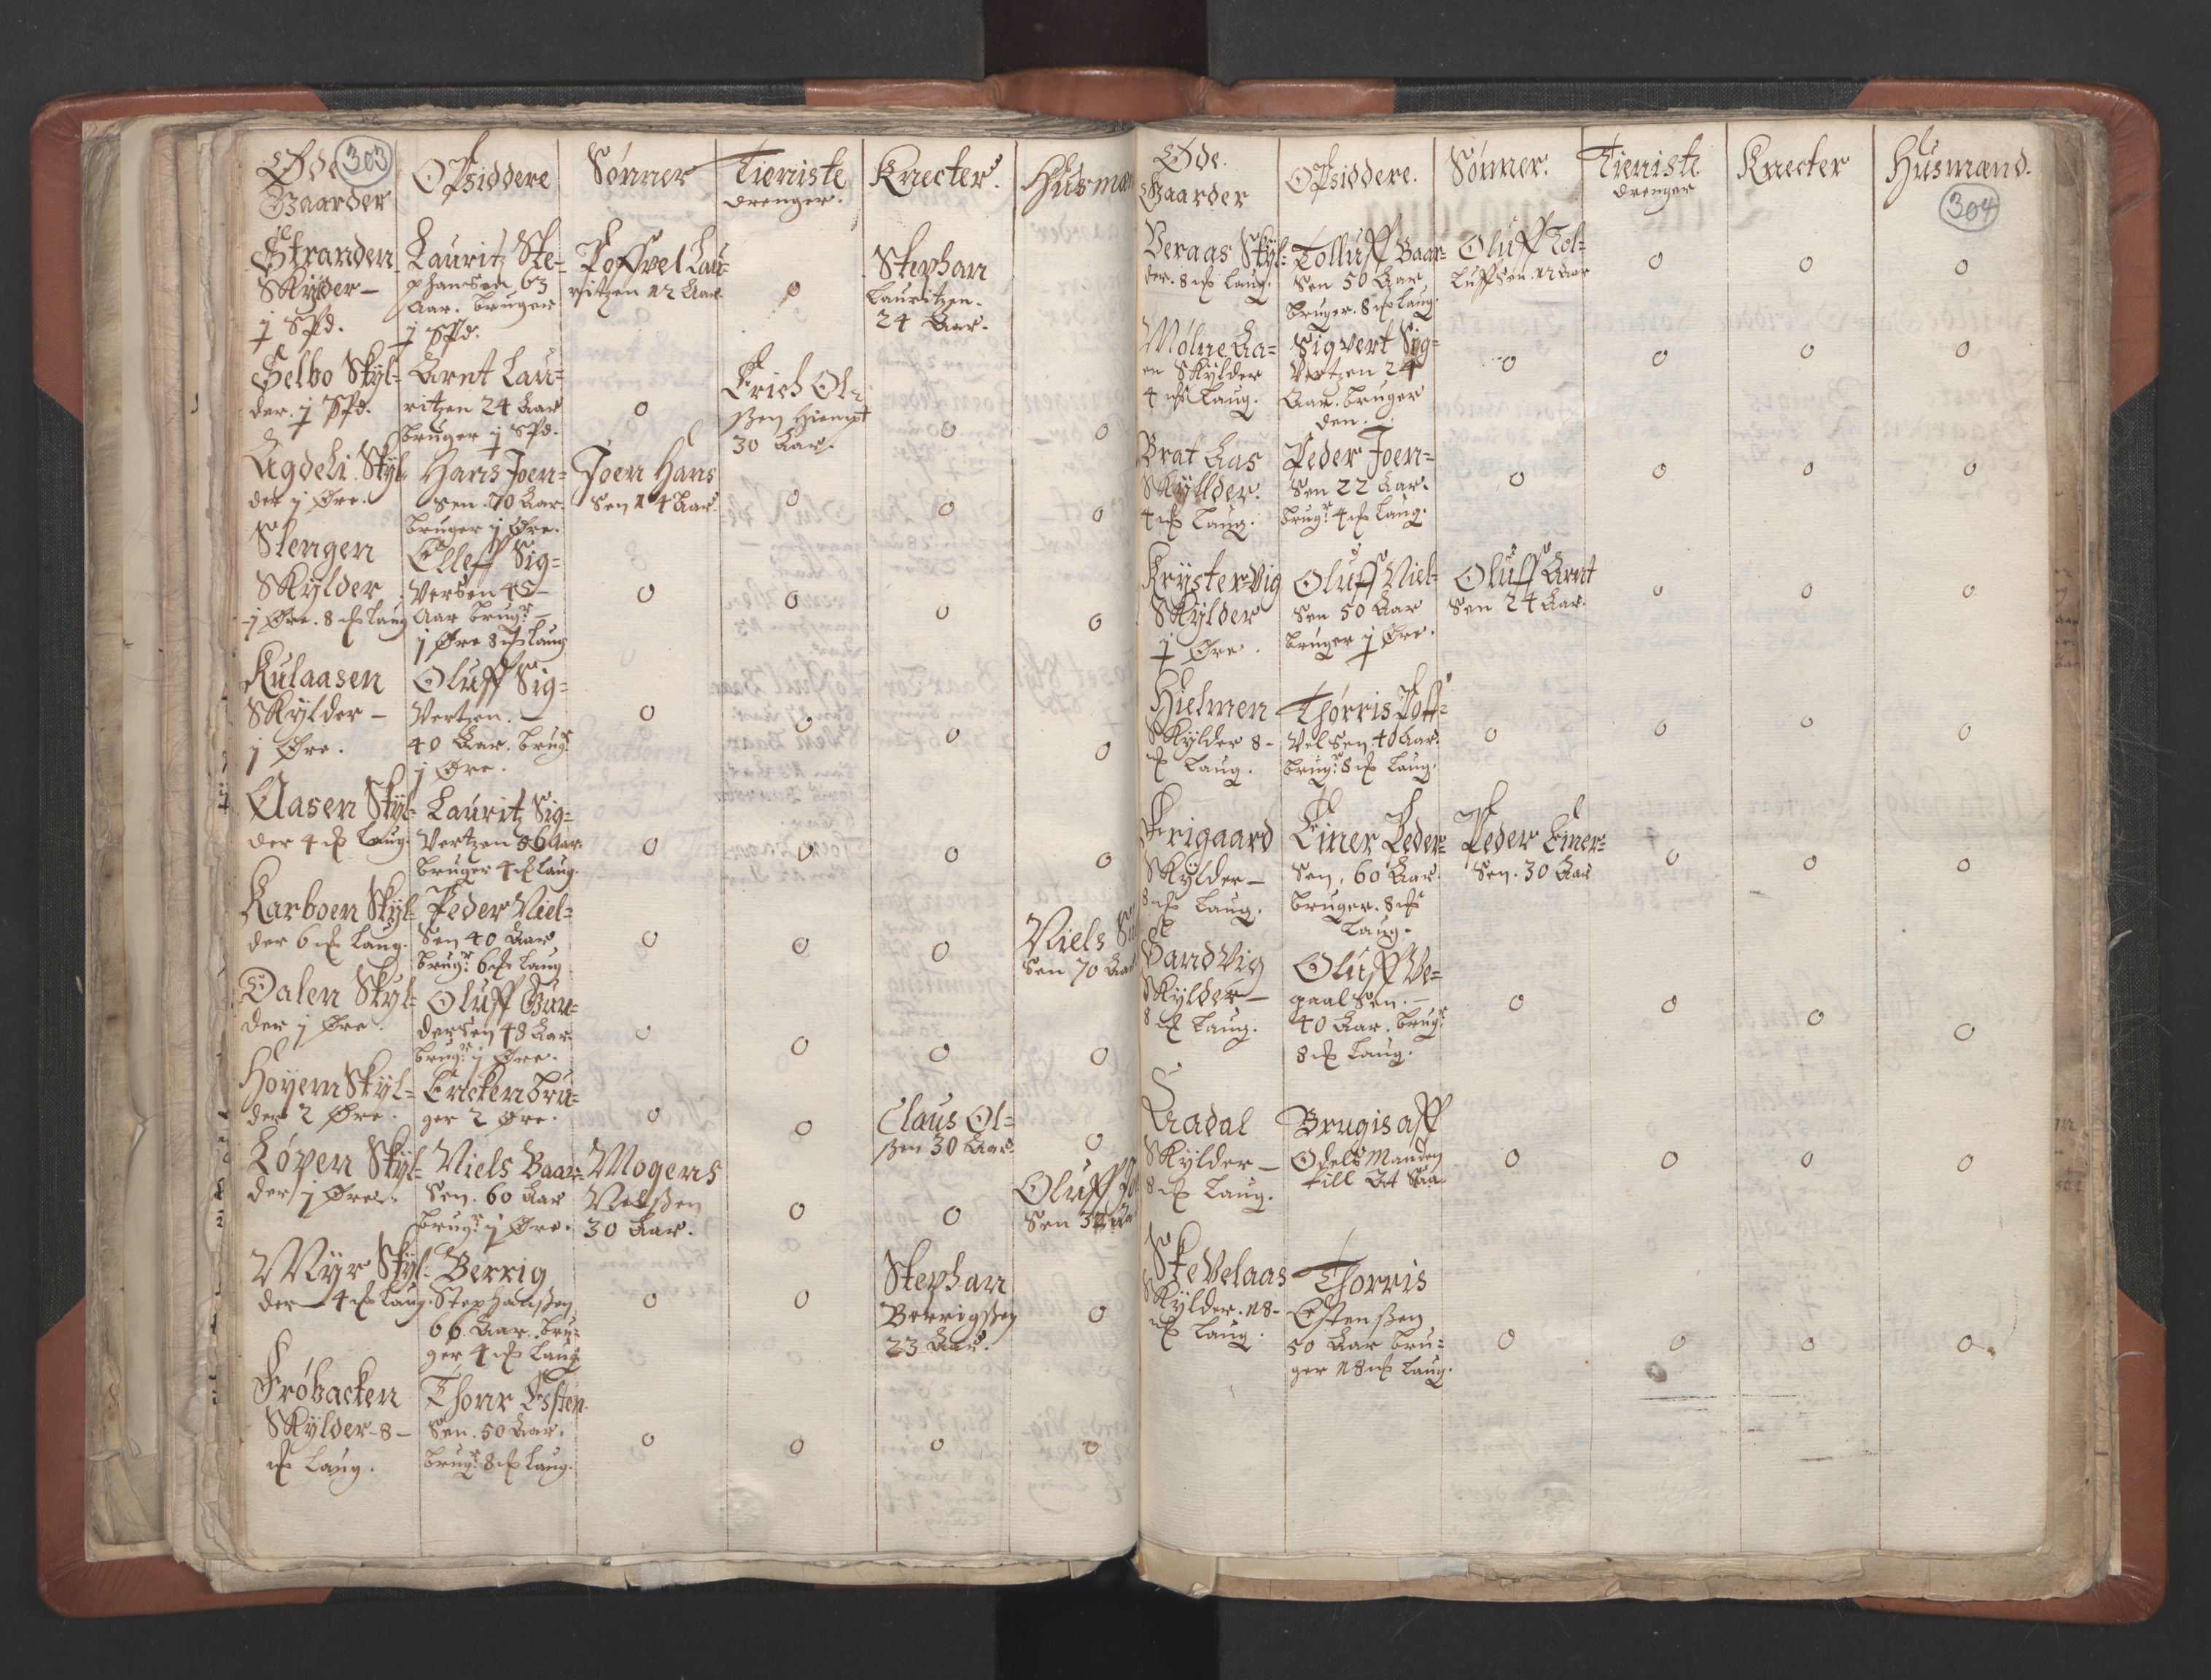 303
Øde
Gaarder
Opsiddere
Sønner
Tieniste
drenger.
Knecter.
Husmæn
Stranden
Skylder –
j Spd.
Lauritz Ste=
phansen 63
Aar. bruger
j Spd.
Poffvel Lau=
ritzen 12 Aar
o
Stephan
Lauritzen.
24 Aar.
Selbo Skyl=
der. j Spd.
Arnt Lau=
ritzen 24 Aar
bruger j Spd.
o
Erich Ol=
ßen Hiempt
30 Aar.
o
o
Agdeli. Skyl
der j Øre.
Hans Joen=
sen. 70 Aar.
bruger j Øre.
Joen Hans
Sen 14 Aar.
o
o
o
Slengen
Skylder
j Øre. 8 Laug
Elleff Sig=
Versen 45 –
Aar brugr –
j Øre 8 Laug
o
o
o
o
Kulaasen
Skylder –
j Øre.
Oluff Sig=
Vertzen. –
40 Aar. brugr
j Øre.
o
o
o
o
Aasen Skyl=
der 4 Laug.
Lauritz Sig=
Vertzen 36 Aar
bruger 4 Laug.
o
o
o
o
Karboen Skyl=
der 6 Laug.
Peder Niel=
Sen 40 Aar
brugr 6 Laug
o
o
o
Niels
Sen 70 Aar
Dalen Skyl=
der j Øre.
Oluff Gun=
dersen 48 Aar.
brugr j Øre.
o
o
o
o
Hoyem Skyl=
der 2 Øre.
Encken bru=
ger 2 Øre.
o
o
Claus Ol=
ßen 30 Aar.
o
Løpen Skyl=
der j Øre.
Niels Baar=
Sen. 60 Aar
brugr j Øre.
Mogens
Nielßen
30 Aar.
o
o
Oluff
Sen
Myr Skyl=
der – 4 Laug.
Berrig
Stephanßen
66 Aar. bru=
ger 4 Laug
o
o
Stephan
Berrigßen
23 Aar.
o
Frøbacken
Skylder – 8 –
Laug.
Thonr Esten
Sen. 50 Aar.
brugr 8 Laug.
o
o
o
o
Øde.
Gaarder
Opsiddere.
Sønner.
Tieniste
drenger
Knecter
Husmænd.
304
Beraas Skyl=
der. 8 Laug.
Tolluff Baar=
Sen 50 Aar
bruger. 8 Laug.
Oluff Tol=
luffsen. 12 Aar
o
o
o
Mølne Aa=
en Skylder
4 Laug.
Sigvert Sig=
Vertzen 24
Aar. bruger
den.
o
o
o
o
Brat Aas
Skyllder.
4 Laug.
Peder Joen=
Sen 22 Aar.
brugr 4 Laug.
o
o
o
o
Krystervig
Skylder
j Øre.
Oluff Niel=
Sen 50 Aar
bruger j Øre.
Oluff Arnt
Sen 24 Aar.
o
o
o
Hielmen
Skylder 8 –
Laug.
Thørris Poff=
Velsen 40 Aar.
brugr 8 Laug.
o
o
o
o
Frigaard
Skylder –
8 Laug.
Einer Peder=
Sen. 60 Aar.
bruger. 8
Laug.
Peder Einer=
Sen. 30 Aar
o
o
o
Sandvig
Skylder –
8 Laug.
Oluff Ve=
gaalsen. –
40 Aar. brugr
8 Laug.
o
o
o
o
Aadal
Skylder –
8 Laug.
Brugis aff
Odels Manden
till
o
o
o
o
Skevelaas
Skylder. 18 –
Laug.
Thorris
Estenßen
50 Aar bru=
ger 18 Laug.
o
o
o
o